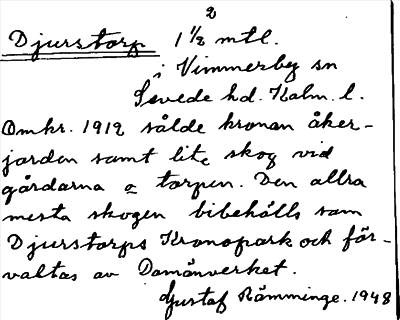 2
Djurstorp 1 1/2 mtl.
i Vimmerby sn
Sevede hd. Kalm. l.
Omkr. 1912 sålde kronan åker-
jorden samt lite skog vid
gårdarna o torpen. Den allra
mesta skogen bibehålls som
Djurstorps Kronopark och för-
valtas av Domänverket.
Gustaf Rämminge. 1948